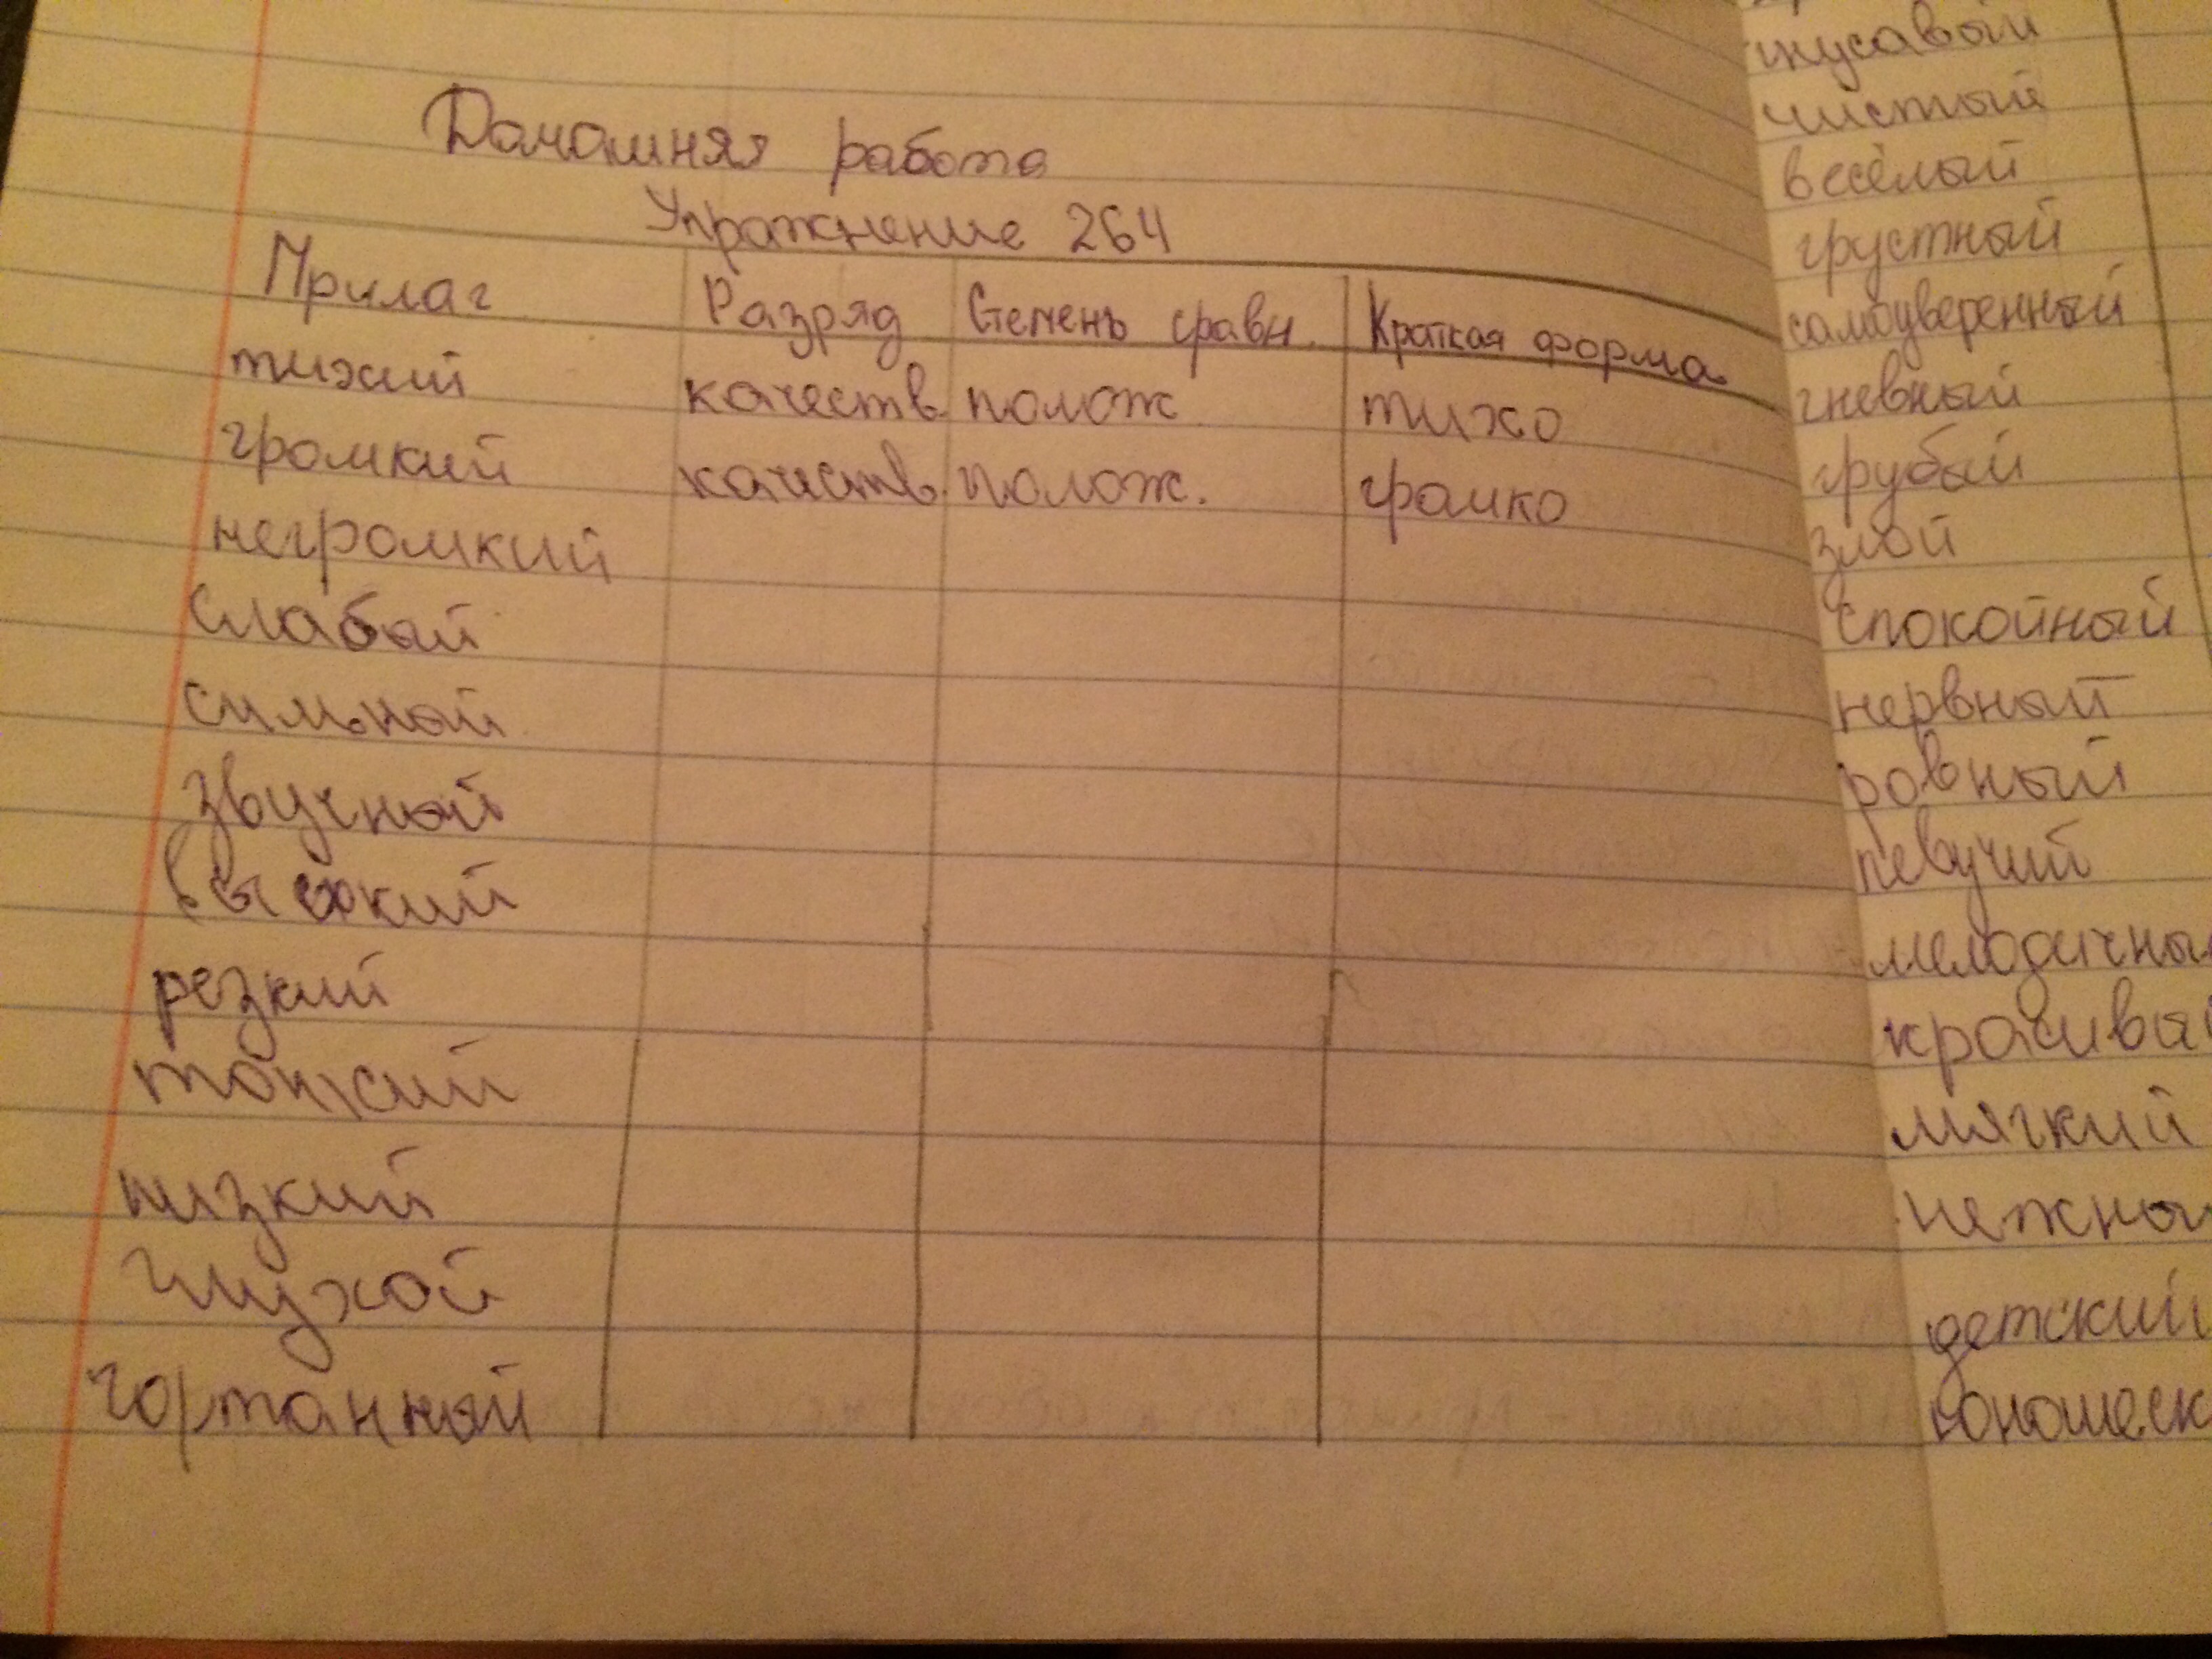 Домашняя работа
Упражнение 264
Прилаг Разряд Степень сравн. Краткая форма
тихий качеств. полож тихо
громкий качеств. полож. громко
негромкий
слабый
сильный
звучный
высокий
резкий
тонкий
низкий
глухой
гортанный
гнусавый
чистый
весёлый
грустный
самоуверенный
гневный
грубый
злой
спокойный
нервный
ровный
певучий
мелодичны
красивый
мягкий
нежны
детский
юношеск